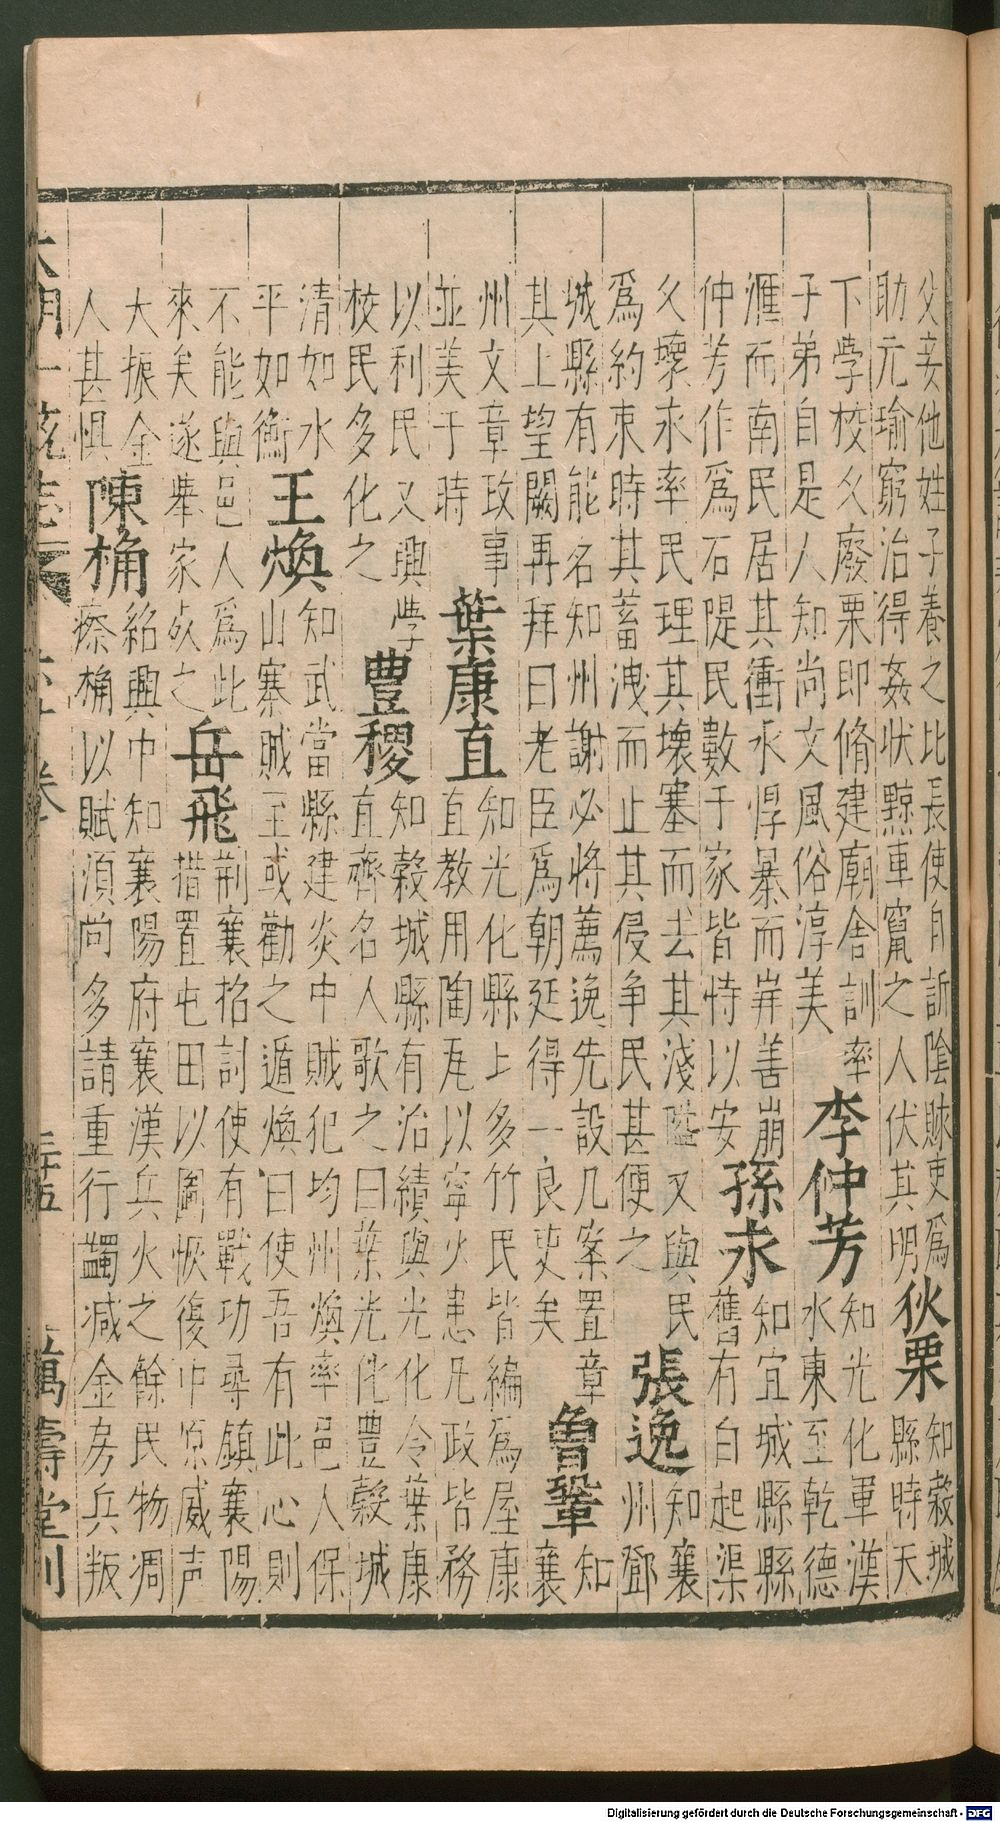 父妾他姓子養之比長使自訴陰賕吏爲
助元瑜窮治得姦狀黥車竄之人伏其明
狄栗
知穀城
縣時天
下學校久廢栗即脩建廟舍訓率
子弟自是人知尚文風俗淳美
李仲芳
知光化軍漢
水東至乾德
滙而南民居其衝水悍暴而岸善崩
仲芳作爲石隄民數千家皆恃以安
孫永
知宜城縣縣
舊有白起渠
久壞永率民理其壞塞而去其淺隘又與民
爲約束時其蓄洩而止其侵争民甚便之
張逸
知襄
州鄧
城縣有能名知州謝必將薦逸先設几案置章
其上望闕再拜曰老臣爲朝廷得一良吏矣
魯鞏
知
襄
州文章政事
並美于時
葉康直
知光化縣上多竹民皆編爲屋康
直教用陶瓦以寧火患凡政皆務
以利民又興學
校民多化之
豐稷
知穀城縣有治績與光化令葉康
直齊名人歌之曰葉光化豐穀城
清如水
平如衡
王煥
知武當縣建炎中賊犯均州煥率邑人保
山寨賊至或勸之遁煥曰使吾有此心則
不能與邑人爲此
來矣遂舉家死之
岳飛
荊襄招討使有戰功尋鎮襄陽
措置屯田以圖恢復中原威声
大振金
人甚惧
陳桷
紹興中知襄陽府襄漢兵火之餘民物凋
瘵桷以賦湏尚多請重行蠲减金房兵叛
大明一統志 六十卷 三十五 萬壽堂刊
Digitalisierung gefördert durch die Deutsche Forschungsgemeinschaft - DFG